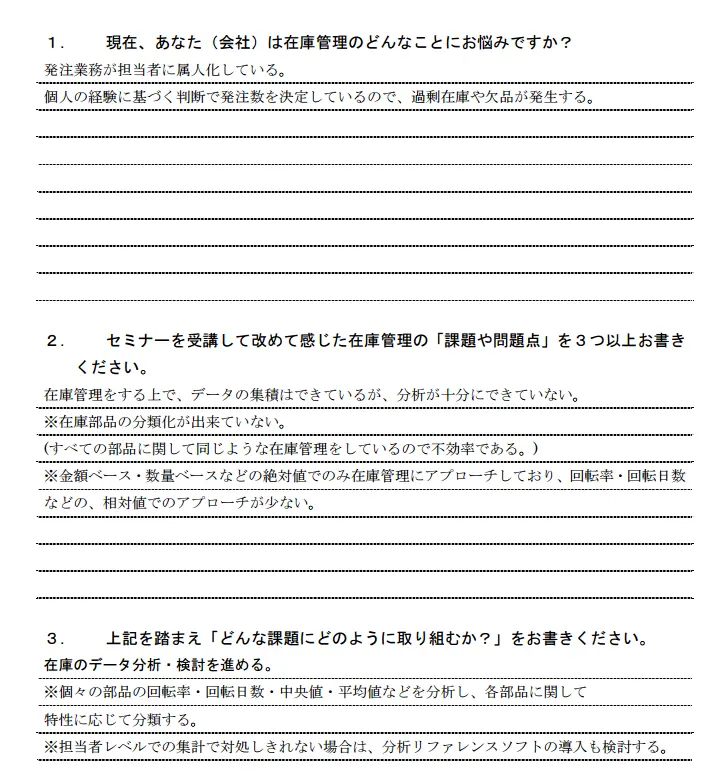 １． 現在、あなた（会社）は在庫管理のどんなことにお悩みですか？
発注業務が担当者に属人化している。
個人の経験に基づく判断で発注数を決定しているので、過剰在庫や欠品が発生する。
２． セミナーを受講して改めて感じた在庫管理の「課題や問題点」を３つ以上お書き
ください。
在庫管理をする上で、データの集積はできているが、分析が十分にできていない。
※在庫部品の分類化が出来ていない。
(すべての部品に関して同じような在庫管理をしているので不効率である。)
※金額ベース・数量ベースなどの絶対値でのみ在庫管理にアプローチしており、回転率・回転日数
などの、相対値でのアプローチが少ない。
３． 上記を踏まえ「どんな課題にどのように取り組むか？」をお書きください。
在庫のデータ分析・検討を進める。
※個々の部品の回転率・回転日数・中央値・平均値などを分析し、各部品に関して
特性に応じて分類する。
※担当者レベルでの集計で対処しきれない場合は、分析リファレンスソフトの導入も検討する。